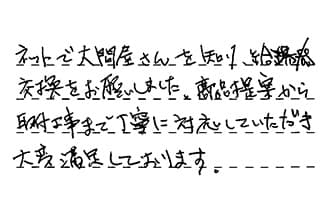 ネットで大問屋さんを知り、給湯器
交換をお願いしました。商品提案から
取付工事まで丁寧に対応していただき
大変満足しております。